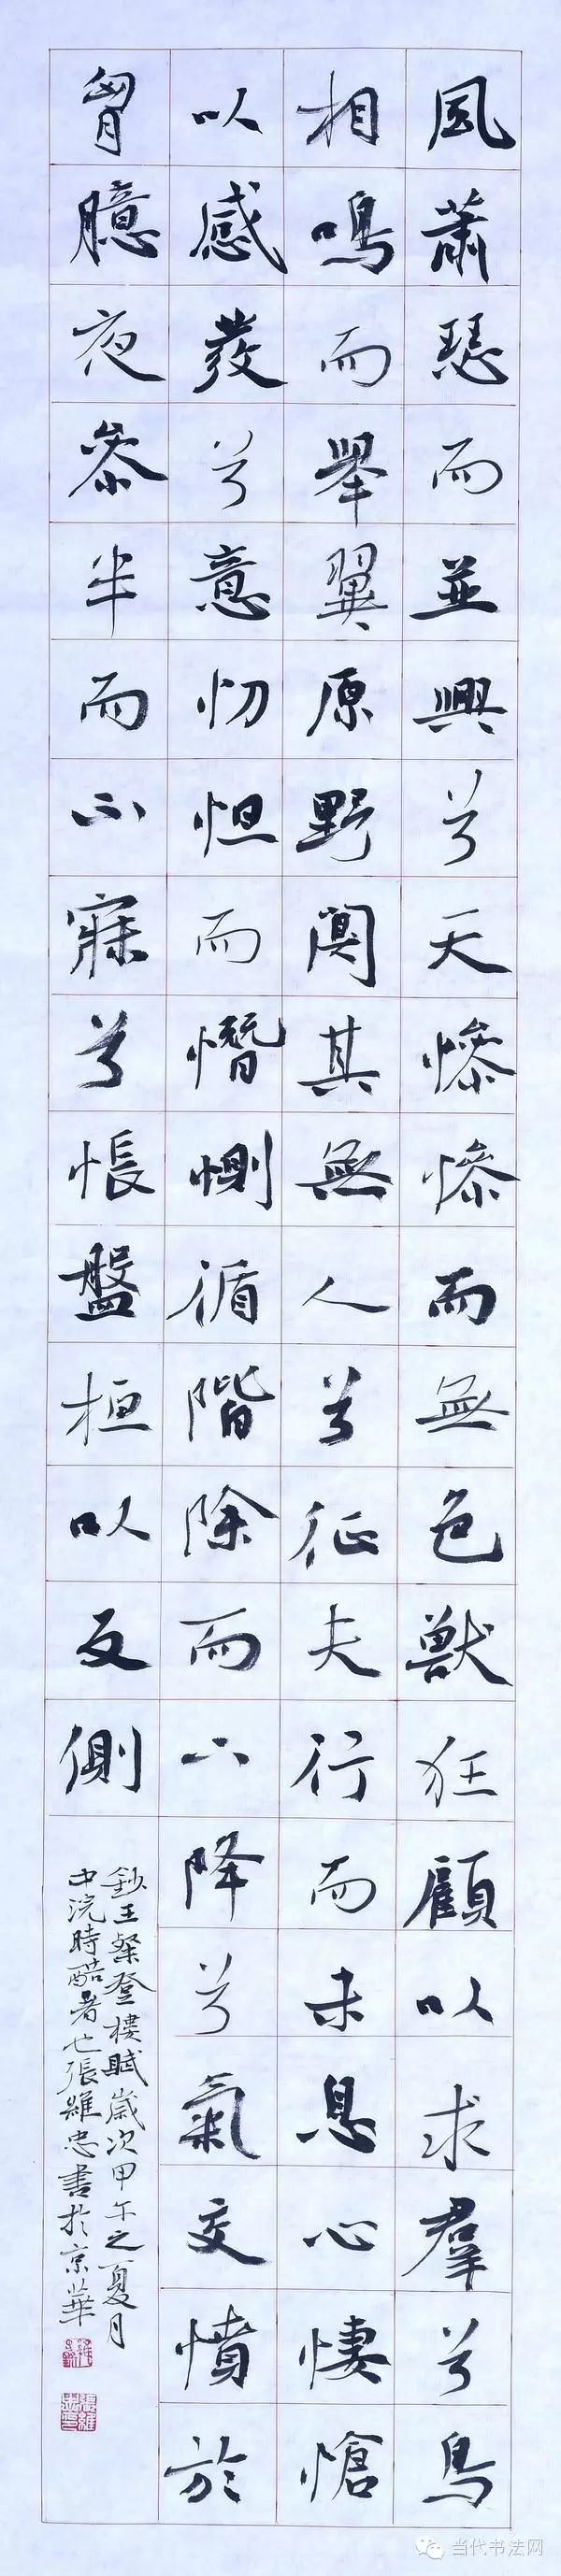 風蕭瑟而並興兮天慘慘而無色獸狂顧以求羣兮鳥
相鳴而舉翼原野闃其無人兮征夫行而未息心悽愴
以感發兮意忉怛而憯惻循階除而下降兮氣交憤於
胷臆夜參半而不寐兮悵盤桓以反側
鈔王粲登樓賦歲次甲午之夏月
中浣時酷暑也張維忠書於京華
当代书法网